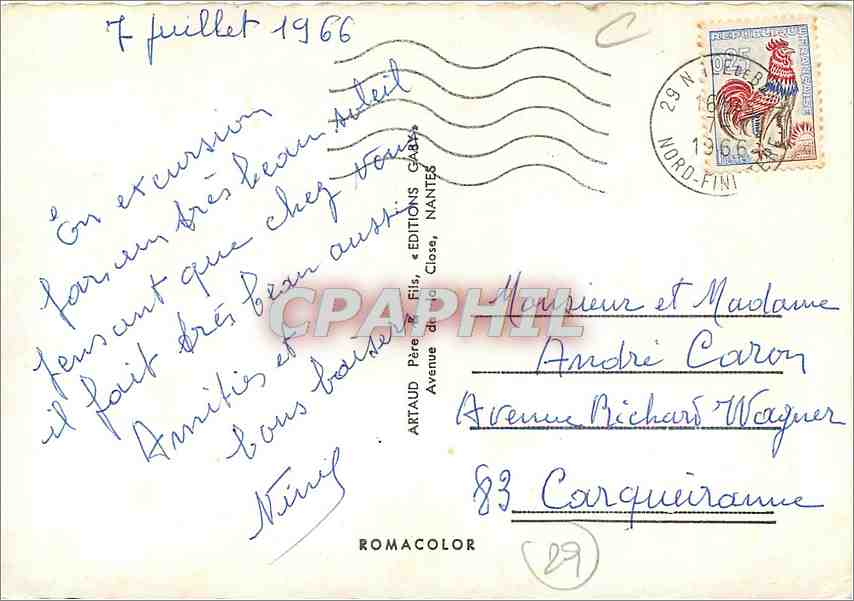 7 juillet 1966
En excursion
par un très beau soleil
pensant que chez vous
il fait très beau aussi
Amitiés et
bons baisers
C
REPUBLIQUE
FRANÇAISE
0,25
29 N
16H
7
1966
NORD-FINISTERE
ARTAUD Père & Fils, « EDITIONS GABY »
Avenue de la Close, NANTES
CPAPHIL
Monsieur et Madame
André Caron
Avenue Richard Wagner
83 Carqueiranne
ROMACOLOR
29